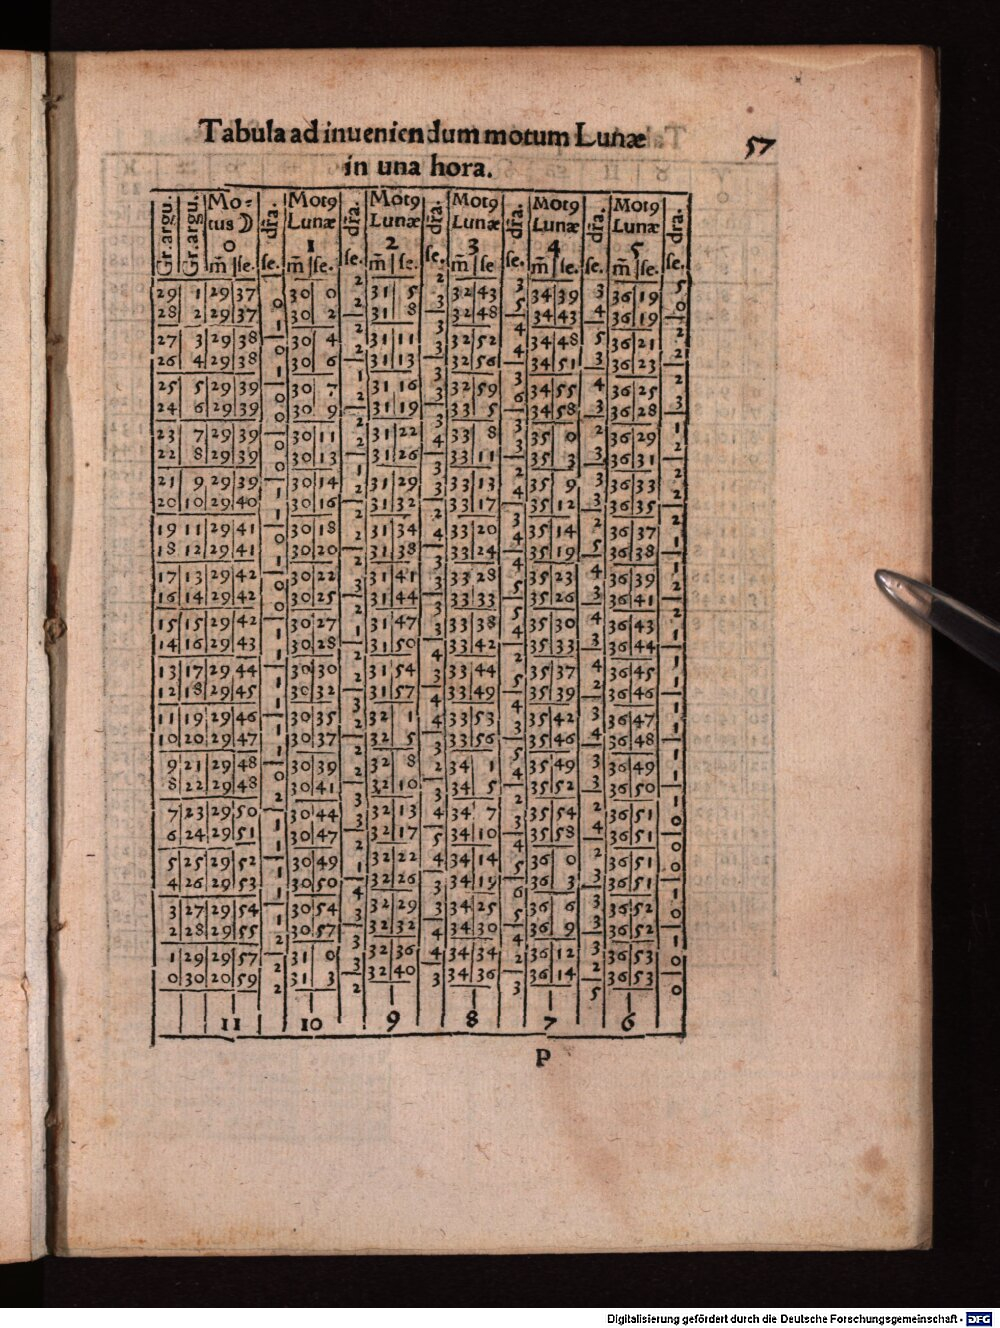 Tabula ad inueniendum motum Lunæ
57
in una hora.
Gr.argu. Gr.argu. Mo= tus ☽ 0 dr̃a. Motꝰ Lunæ 1 dr̃a. Motꝰ Lunæ 2 dr̃a. Motꝰ Lunæ 3 dr̃a. Motꝰ Lunæ 4 dr̃a. Motꝰ Lunæ 5 dra.
m̃ ſe. ſe. m̃ ſe. ſe. m̃ ſe. ſe. m̃ ſe ſe. m̃ ſe. ſe. m̃ ſe. ſe.
29 1 29 37 0 30 0 2 31 5 2 32 43 3 34 39 3 36 19 5
28 2 29 37 30 2 2 31 8 3 32 48 5 34 43 4 36 19 0
27 3 29 38 1 30 4 2 31 11 3 32 52 4 34 48 5 36 21 2
26 4 29 38 0 30 6 2 31 13 3 32 56 4 34 51 3 36 23 2
25 5 29 39 1 30 7 1 31 16 3 32 59 3 34 55 4 36 25 2
24 6 29 39 0 30 9 2 31 19 3 33 5 6 34 58 3 36 28 3
23 7 29 39 0 30 11 2 31 22 3 33 8 3 35 0 2 36 29 1
22 8 29 39 0 30 13 2 31 26 4 33 11 3 35 3 3 36 31 2
21 9 29 39 0 30 14 1 31 29 3 33 13 2 35 9 3 36 33 2
20 10 29 40 1 30 16 2 31 32 3 33 17 4 35 12 3 36 35 2
19 11 29 41 1 30 18 2 31 34 2 33 20 3 35 14 2 36 37 2
18 12 29 41 0 30 20 2 31 38 4 33 24 4 35 19 5 36 38 1
17 13 29 42 1 30 22 2 31 41 3 33 28 4 35 23 4 36 39 1
16 14 29 42 0 30 25 3 31 44 3 33 33 5 35 26 3 36 41 2
15 15 29 42 0 30 27 2 31 47 3 33 38 5 35 30 4 36 43 2
14 16 29 43 1 30 28 1 31 50 3 33 42 4 35 33 3 36 44 1
13 17 29 44 1 30 30 2 31 54 4 33 44 2 35 37 4 36 45 1
12 18 29 45 1 30 32 2 31 57 3 33 49 5 35 39 2 36 46 1
11 19 29 46 1 30 35 3 32 1 4 33 53 4 35 42 3 36 47 1
10 20 29 47 1 30 37 2 32 5 4 33 56 3 35 46 4 36 48 1
9 21 29 48 1 30 39 2 32 8 3 34 1 5 35 49 3 36 49 1
8 22 29 48 0 30 41 2 32 10 2 34 5 4 35 52 3 36 50 1
7 23 29 50 2 30 44 3 32 13 3 34 7 2 35 54 2 36 51 1
6 24 29 51 1 30 47 3 32 17 4 34 10 3 35 58 4 36 51 0
5 25 29 52 1 30 49 2 32 22 5 34 14 4 36 0 2 36 51 0
4 26 29 53 1 30 50 1 32 26 4 34 19 5 36 3 3 36 51 0
3 27 29 54 1 30 54 4 32 29 3 34 25 6 36 6 3 36 52 1
2 28 29 55 1 30 57 3 32 32 3 34 30 5 36 9 3 36 52 0
1 29 29 57 2 31 0 3 32 36 4 34 34 4 36 12 3 36 53 1
0 30 20 59 2 31 3 3 32 40 4 34 36 2 36 14 2 36 53 0
2 2 3 3 5 0
11 10 9 8 7 6
P
Digitalisierung gefördert durch die Deutsche Forschungsgemeinschaft - DFG